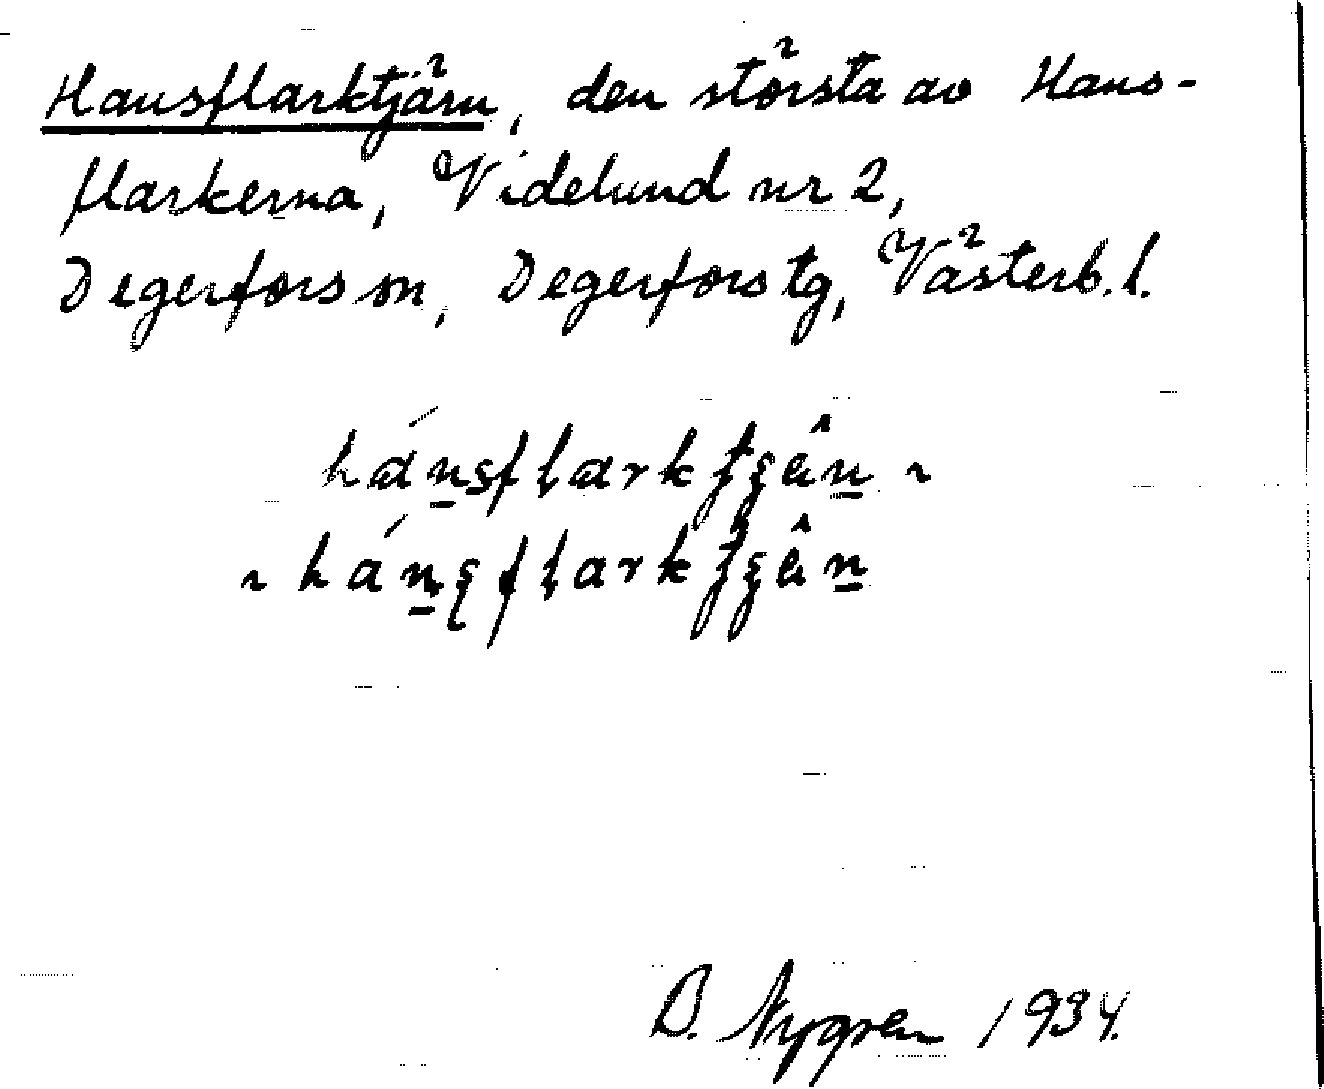 Hansflarktjärn, den största av Hans-
flarkerna, Videlund nr 2,
Degerfors sn, Degerfors tg, Västerb. l.
B. Nygren 1934.